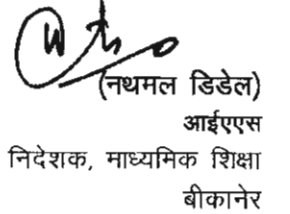 (नथमल डिडेल)
आईएएस
निदेशक, माध्यमिक शिक्षा
बीकानेर